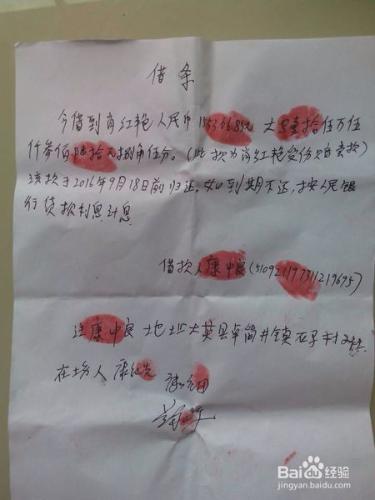 借条
今借到肖红艳人民币 大写壹拾伍万伍
仟叁佰陆拾元捌角伍分。(此款为肖红艳受伤赔偿款)
该款于2016年9月18日前归还,如到期不还,按人民银
行贷款利息计息
借款人康中良
注康中良地址大英县卓筒井镇
在场人
Bai du 经验
jingyan.baidu.com